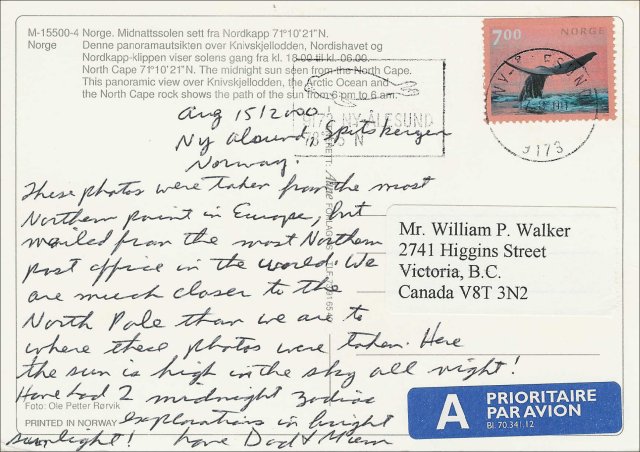 M-15500-4 Norge. Midnattssolen sett fra Nordkapp 71°10'21"N.
Norge Denne panoramautsikten over Knivskjellodden, Nordishavet og
Nordkapp-klippen viser solens gang fra kl. 18.00 til kl. 06.00.
North Cape 71°10'21"N. The midnight sun seen from the North Cape.
This panoramic view over Knivskjellodden, the Arctic Ocean and
the North Cape rock shows the path of the sun from 6 pm to 6 am.
7.00 NORGE
NY-ÅLESUND
9173
9173 NY-ÅLESUND
Aug 15/2000
Ny Alsund, Spitsbergen
Norway.
These photos were taken from the most
Northern point in Europe, but
mailed from the most Northern
post office in the world. We
are much closer to the
North Pole than we are to
where these photos were taken. Here
the sun is high in the sky all night!
Have had 2 midnight zodiac
explorations in bright
sunlight! Love Dad & Miem
Mr. William P. Walker
2741 Higgins Street
Victoria, B.C.
Canada V8T 3N2
Foto: Ole Petter Rørvik
PRINTED IN NORWAY
A PRIORITAIRE
PAR AVION
Bl. 70.341.12